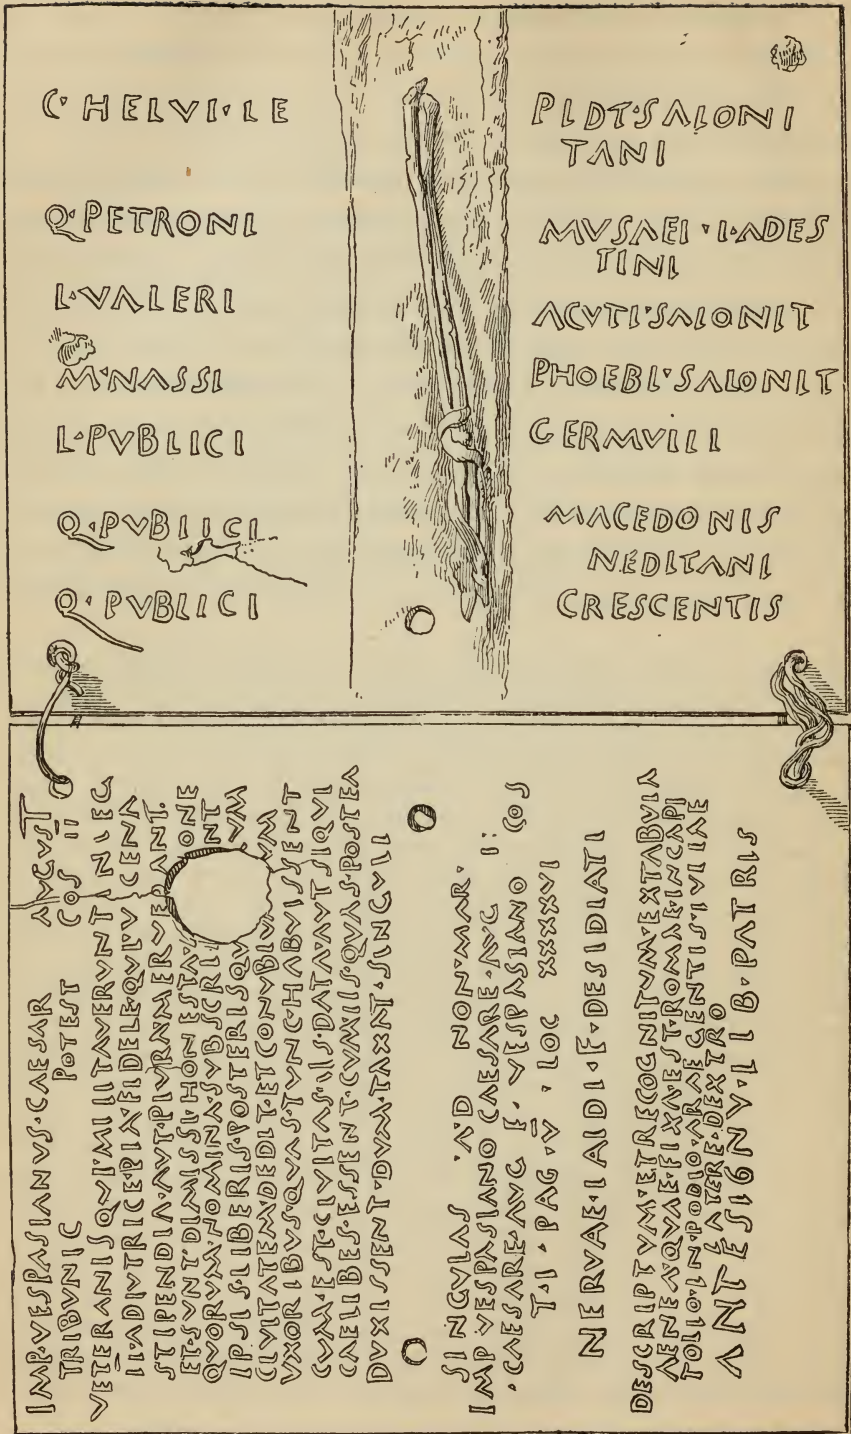 C·HELVI·LE PLDT·SALONI
TANI
Q·PETRONI MVSAEI·I·ADES
TINI
L·VALERI ACVTI·SALONIT
M·NASSI PHOEBI·SALONIT
L·PVBLICI GERMVLLI
Q·PVBLICI MACEDONIS
NEDITANI
Q·PVBLICI CRESCENTIS
IMP·VESPASIANVS·CAESAR AVGVST
TRIBVNIC POTEST COS II
VETERANIS QVI·MILITAVERVNT IN LEG
II·ADIVTRICE·PIA·FIDELE·QVI·V CENA
STIPENDIA·AVT·PLVRA·MERVERANT
ET·SVNT·DIMISSI·HONESTA ONE
QVORVM·NOMINA·SVBSCRI NT
IPSIS·LIBERIS·POSTERISQV VM
CIVITATEM·DEDIT·ET CONVBIV VM
VXORIBVS·QVAS·TVNC·HABVISSENT
CVM·EST·CIVITAS·IIS·DATA·AVT SIQVI
CAELIBES·ESSENT·CVM IIS·QVAS·POSTEA
DVXISSENT·DVM·TAXAT·SINGVLI
SINGVLAS ·A·D NON·MAR·
IMP VESPASIANO CAESARE·AVG II COS
·CAESARE·AVG F·VESPASIANO
T·I·PAG·V·LOC XXXXVI
NERVAE·LAIDI·F·DESIDIATI
DESCRIPTVM·ET RECOGNITVM·EX TABVLA
AENEA·QVAE·FIXA·EST·ROMAE·IN CAPI
TOLIO·IN·PODIO·ARAE GENTIS·IVLIAE
LATERE·DEXTRO
ANTE·SIGNV·LIB·PATRIS